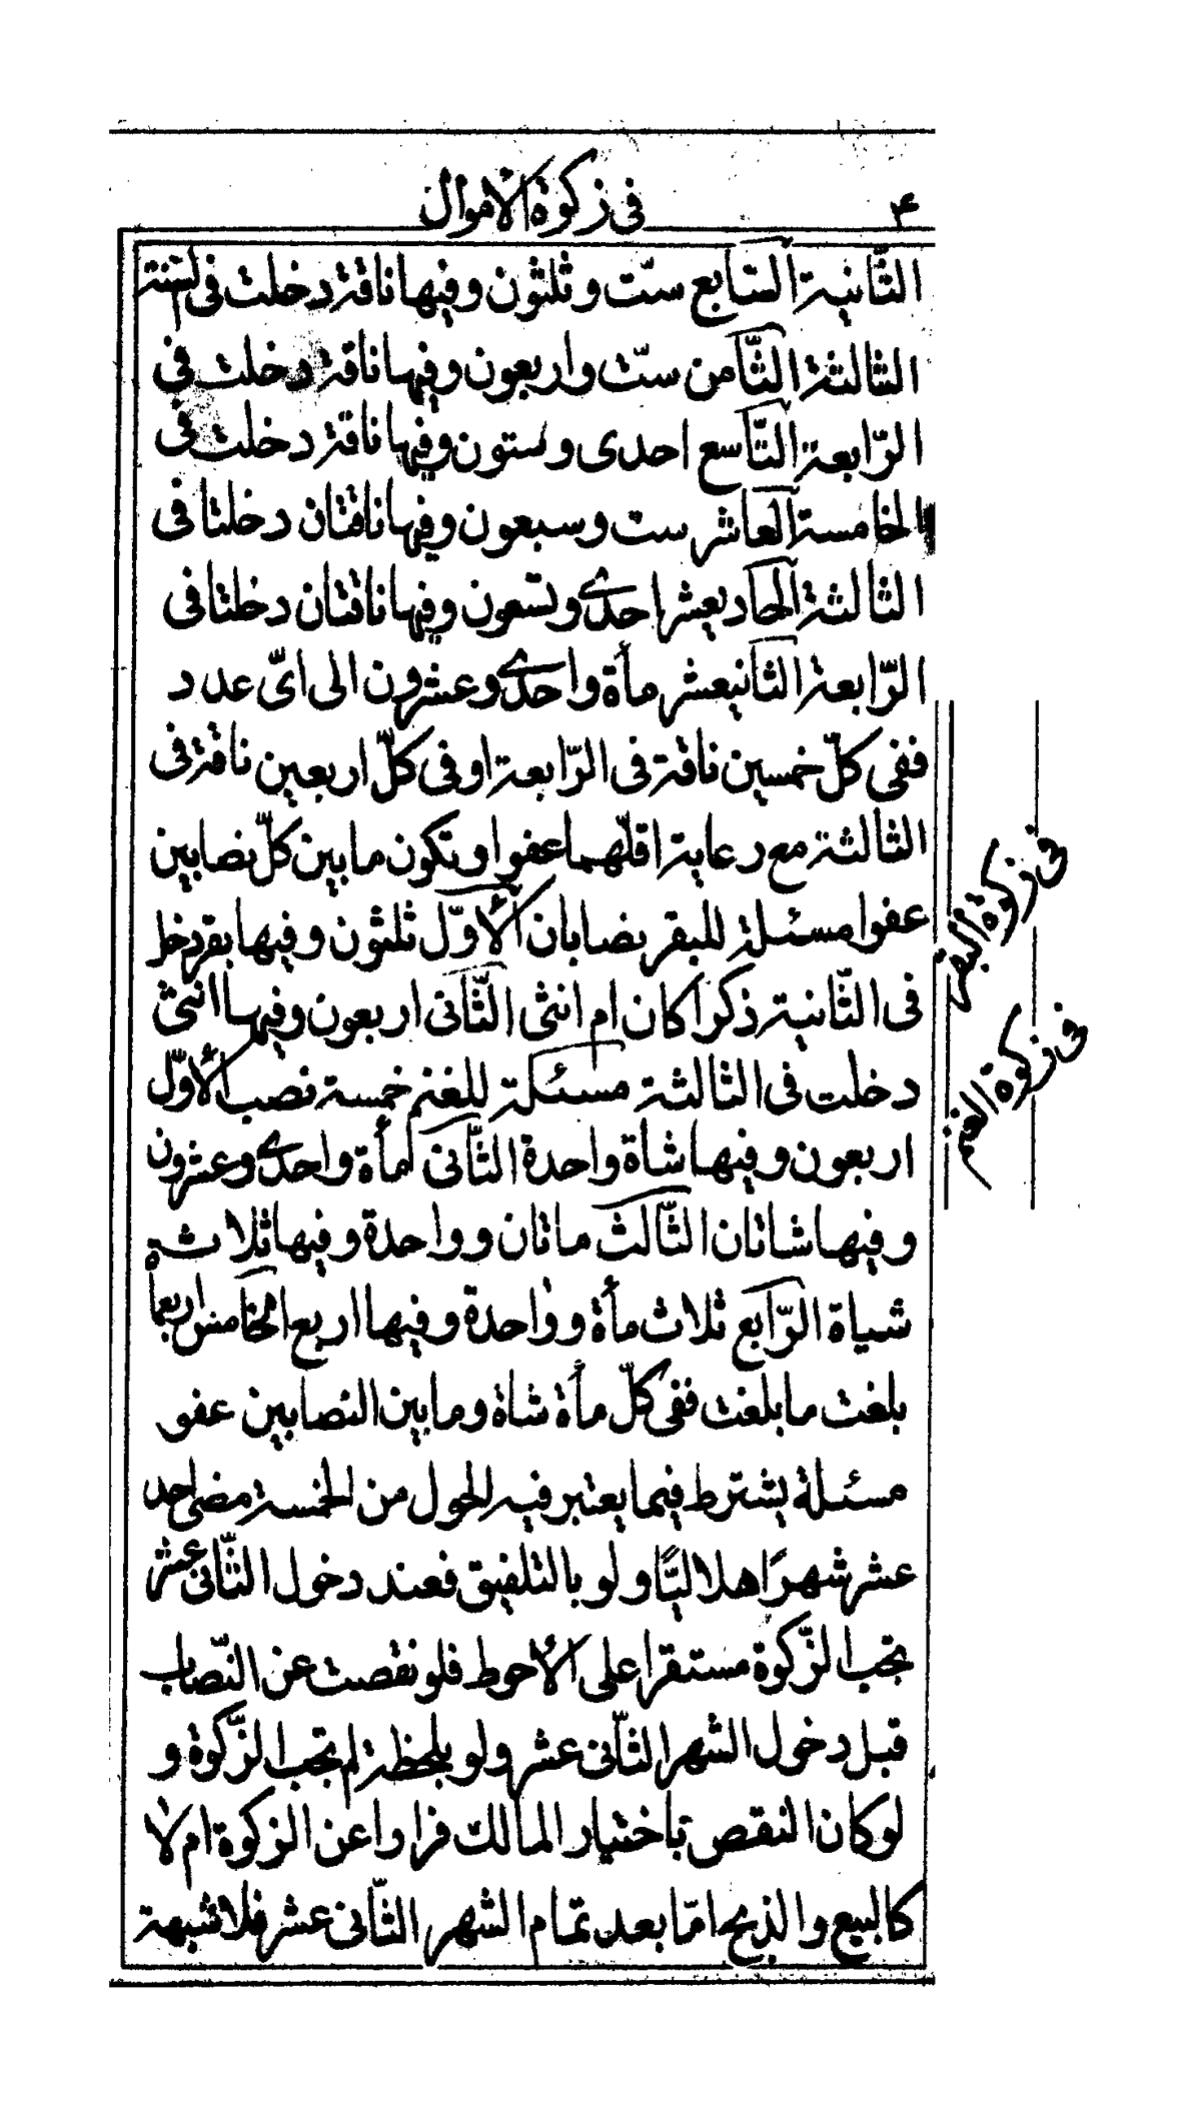 ۴
في زكوة الاموال
الثّانية السّابع ستّ وثلثون وفيها ناقة دخلت في السّنة
الثالثة الثّامن ستّ واربعون وفيها ناقة دخلت في
الرّابعة التّاسع احدى وستون وفيها ناقة دخلت في
الخامسة العاشر ست وسبعون وفيها ناقتان دخلتا في
الثالثة الحاديعشر احدى وتسعون وفيها ناقتان دخلتا في
الرّابعة الثّانيعشر مأة واحدى وعشرون الى اىّ عدد
ففي كلّ خمسين ناقة في الرّابعة او في كلّ اربعين ناقة في
الثالثة مع رعاية اقلّهما عفوا وتكون ما بين كلّ نصابين
عفوا مسئلة للبقر نصابان الأوّل ثلثون وفيها بقر دخل
في الثّانية ذكرا كان ام انثى الثّاني اربعون وفيها انثى
دخلت في الثالثة مسئلة للغنم خمسة نصب الأوّل
اربعون وفيها شاة واحدة الثّاني مأة واحدى وعشرون
وفيها شاتان الثّالث ماتان وواحدة وفيها ثلاث
شياة الرّابع ثلاث مأة وواحدة وفيها اربع الخامس اربعمأ
بلغت ما بلغت ففي كلّ مأة شاة وما بين النصابين عفو
مسئلة يشترط فيما يعتبر فيه الحول من الخمسة مضى احد
عشر شهرًا هلاليًّا ولو بالتلفيق فعند دخول الثّاني عشر
تجب الزّكوة مستقرا على الأحوط فلو نقصت عن النّصاب
قبل دخول الشهر الثّاني عشر ولو بلحظة لم تجب الزّكوة و
لو كان النقص باختيار المالك فرارا عن الزكوة ام لا
كالبيع والذبح امّا بعد تمام الشهر الثّاني عشر فلا شبهة
في زكوة البقر
في زكوة الغنم